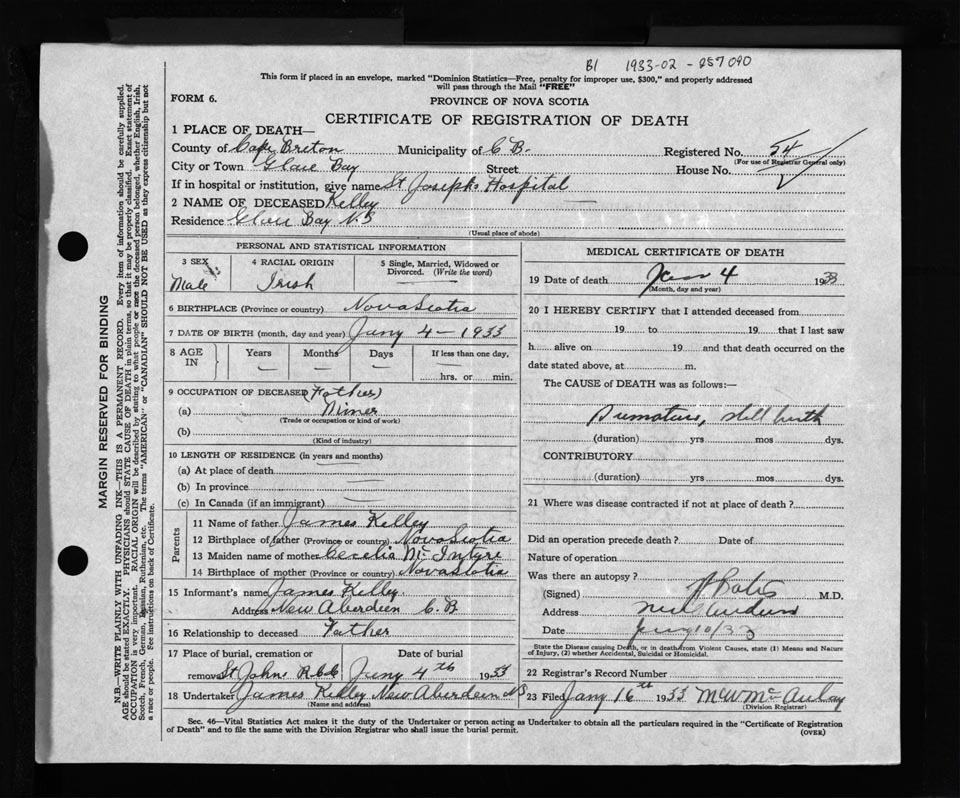 B1 1933-02-257090
This form if placed in an envelope, marked "Dominion Statistics—Free, penalty for improper use, $300," and properly addressed
will pass through the Mail "FREE"
FORM 6.
PROVINCE OF NOVA SCOTIA
CERTIFICATE OF REGISTRATION OF DEATH
1 PLACE OF DEATH—
County of Cape Breton Municipality of C B. Registered No. 54
(For use of Registrar General only)
City or Town Glace Bay Street House No.
If in hospital or institution, give name St Josephs Hospital
2 NAME OF DECEASED Kelley
Residence Glace Bay N.S
(Usual place of abode)
PERSONAL AND STATISTICAL INFORMATION
3 SEX Male
4 RACIAL ORIGIN Irish
5 Single, Married, Widowed or Divorced. (Write the word)
6 BIRTHPLACE (Province or country) Nova Scotia
7 DATE OF BIRTH (month, day and year) Jany 4 – 1933
8 AGE IN Years Months Days If less than one day,
hrs. or min.
9 OCCUPATION OF DECEASED (Father)
(a) Miner
(Trade or occupation or kind of work)
(b)
(Kind of industry)
10 LENGTH OF RESIDENCE (in years and months)
(a) At place of death
(b) In province
(c) In Canada (if an immigrant)
Parents
11 Name of father James Kelley
12 Birthplace of father (Province or country) Nova Scotia
13 Maiden name of mother Cecelia Mc Intyre
14 Birthplace of mother (Province or country) Nova Scotia
15 Informant's name James Kelley
Address New Aberdeen C.B
16 Relationship to deceased Father
17 Place of burial, cremation or removal St Johns
Date of burial Jany 4th 1933
18 Undertaker James Kelley New Aberdeen NS
(Name and address)
MEDICAL CERTIFICATE OF DEATH
19 Date of death Jan 4 1933
(Month, day and year)
20 I HEREBY CERTIFY that I attended deceased from
19 to 19 that I last saw
h alive on 19 and that death occurred on the
date stated above, at m.
The CAUSE of DEATH was as follows:—
Premature, still birth
(duration) yrs mos dys.
CONTRIBUTORY
(duration) yrs mos dys.
21 Where was disease contracted if not at place of death?
Did an operation precede death? Date of
Nature of operation
Was there an autopsy?
(Signed) M.D.
Address New Aberdeen
Date Jany 10/33
State the Disease causing Death, or in death from Violent Causes, state (1) Means and Nature
of Injury, (2) whether Accidental, Suicidal or Homicidal.
22 Registrar's Record Number
23 Filed Jany 16th 1933 McAulay
(Division Registrar)
Sec. 46—Vital Statistics Act makes it the duty of the Undertaker or person acting as Undertaker to obtain all the particulars required in the "Certificate of Registration
of Death" and to file the same with the Division Registrar who shall issue the burial permit.
(OVER)
MARGIN RESERVED FOR BINDING
N.B.—WRITE PLAINLY WITH UNFADING INK—THIS IS A PERMANENT RECORD. Every item of information should be carefully supplied.
AGE should be stated EXACTLY. PHYSICIANS should STATE CAUSE OF DEATH in plain terms, so that it may be properly classified. Exact statement of
OCCUPATION is very important. RACIAL ORIGIN will be described by stating to what people or race the deceased person belonged, whether English, Irish,
Scotch, French, German, Russian, Ruthenian, etc. The terms "AMERICAN" or "CANADIAN" SHOULD NOT BE USED as they express citizenship but not
a race or people. See instructions on back of Certificate.